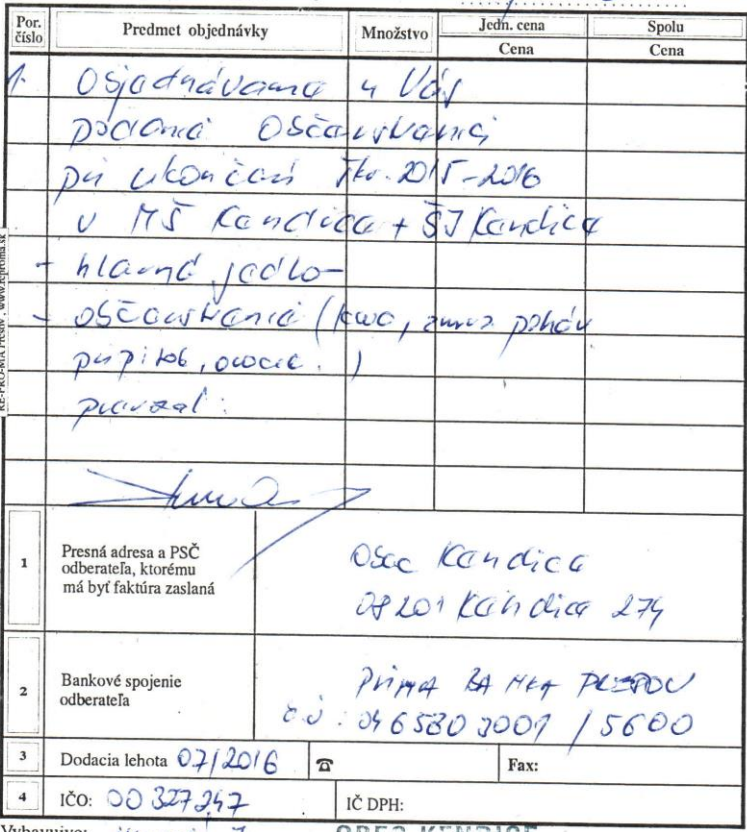 Por. číslo Predmet objednávky Množstvo Jedn. cena Spolu
Cena Cena
1. Objednávame u Vás
podanie občerstvenia
pri ukončení šk.r. 2015-2016
v MŠ Kendice + ŠJ Kendice
- hlavné jedlo
- občerstvenie (káva, zmrz. pohár
prípitok, ovocie.)
prevzal:
1 Presná adresa a PSČ
odberateľa, ktorému
má byť faktúra zaslaná
Obec Kendice
08201 Kendice 274
2 Bankové spojenie
odberateľa
PRIMA BANKA PREŠOV
č.ú: 0465803001 / 5600
3 Dodacia lehota 07/2016 ☎ Fax:
4 IČO: 00327247 IČ DPH:
Vybavuje:
OBEC KENDICE